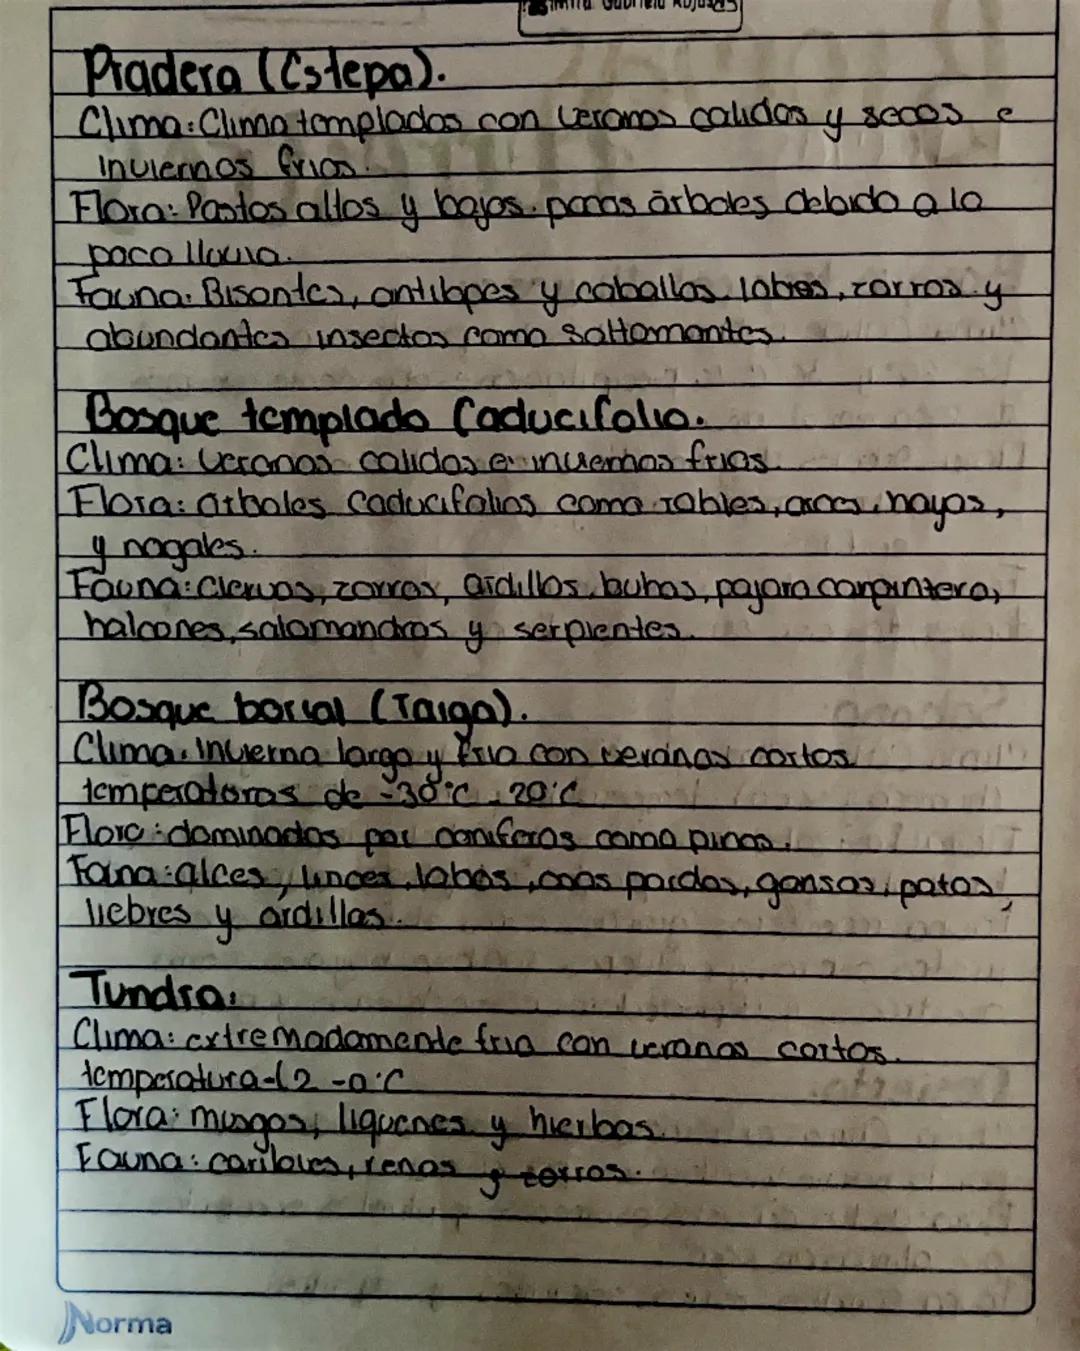 Gabriela Rojas
Pradera (Estepa).
Clima: Clima templados con veranos calidos y secos e
inviernos frios.
Flora: Pastos altos y bajos. pocos árboles debido a la
poca lluvia.
Fauna: Bisontes, antilopes y caballos. lobos, zorros y
abundantes insectos como saltamontes.
Bosque templado Caducifolio.
Clima: Veranos calidos e inviernos frios.
Flora: arboles Caducifolios como robles, arces, hayas,
y nogales.
Fauna: Ciervos, zorros, ardillas, buhos, pajaro carpintero,
halcones, salamandras y serpientes.
Bosque borial (Taiga).
Clima: Invierno largo y frio con veranos cortos
temperaturas de -30°C . 20°C
Flora: dominados por coniferas como pinos.
Fana: alces, linces, lobos, osos pardos, gansos, patos,
liebres y ardillas.
Tundra:
Clima: extremadamente frio con veranos cortos.
temperatura -12 -0°C
Flora: musgos, liquenes y hierbas.
Fauna: caribues, renos y zorros.
Norma